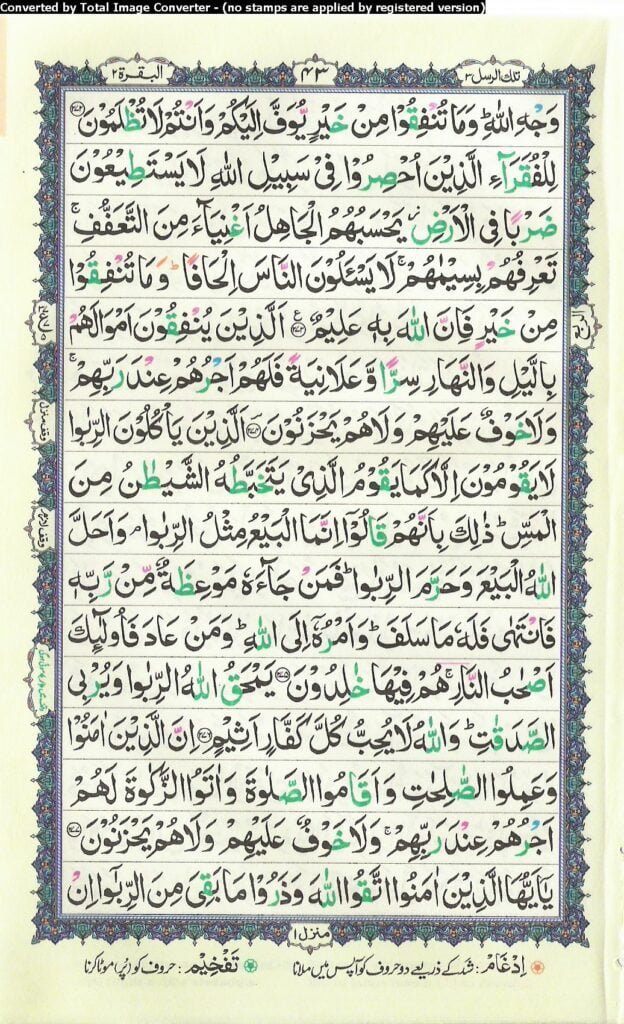 Converted by Total Image Converter - (no stamps are applied by registered version)
تلك الرسل ٣
٤٣
البقرة ٢
وَجْهِ اللّٰهِ ؕ وَمَا تُنْفِقُوْا مِنْ خَيْرٍ يُّوَفَّ اِلَيْكُمْ وَاَنْتُمْ لَا تُظْلَمُوْنَ ﴿۲۷۲﴾
لِلْفُقَرَآءِ الَّذِيْنَ اُحْصِرُوْا فِيْ سَبِيْلِ اللّٰهِ لَا يَسْتَطِيْعُوْنَ
ضَرْبًا فِي الْاَرْضِ ۫ يَحْسَبُهُمُ الْجَاهِلُ اَغْنِيَآءَ مِنَ التَّعَفُّفِ ۚ
تَعْرِفُهُمْ بِسِيْمٰىهُمْ ۚ لَا يَسْـَٔلُوْنَ النَّاسَ اِلْحَافًا ؕ وَمَا تُنْفِقُوْا
مِنْ خَيْرٍ فَاِنَّ اللّٰهَ بِهٖ عَلِيْمٌ ﴿۲۷۳﴾ ع اَلَّذِيْنَ يُنْفِقُوْنَ اَمْوَالَهُمْ
بِالَّيْلِ وَالنَّهَارِ سِرًّا وَّعَلَانِيَةً فَلَهُمْ اَجْرُهُمْ عِنْدَ رَبِّهِمْ ۚ
وَلَا خَوْفٌ عَلَيْهِمْ وَلَا هُمْ يَحْزَنُوْنَ ﴿۲۷۴﴾ اَلَّذِيْنَ يَاْكُلُوْنَ الرِّبٰوا
لَا يَقُوْمُوْنَ اِلَّا كَمَا يَقُوْمُ الَّذِيْ يَتَخَبَّطُهُ الشَّيْطٰنُ مِنَ
الْمَسِّ ؕ ذٰلِكَ بِاَنَّهُمْ قَالُوْٓا اِنَّمَا الْبَيْعُ مِثْلُ الرِّبٰوا ۘ وَاَحَلَّ
اللّٰهُ الْبَيْعَ وَحَرَّمَ الرِّبٰوا ؕ فَمَنْ جَآءَهٗ مَوْعِظَةٌ مِّنْ رَّبِّهٖ
فَانْتَهٰى فَلَهٗ مَا سَلَفَ ؕ وَاَمْرُهٗٓ اِلَى اللّٰهِ ؕ وَمَنْ عَادَ فَاُولٰٓئِكَ
اَصْحٰبُ النَّارِ ۚ هُمْ فِيْهَا خٰلِدُوْنَ ﴿۲۷۵﴾ يَمْحَقُ اللّٰهُ الرِّبٰوا وَيُرْبِي
الصَّدَقٰتِ ؕ وَاللّٰهُ لَا يُحِبُّ كُلَّ كَفَّارٍ اَثِيْمٍ ﴿۲۷۶﴾ اِنَّ الَّذِيْنَ اٰمَنُوْا
وَعَمِلُوا الصّٰلِحٰتِ وَاَقَامُوا الصَّلٰوةَ وَاٰتَوُا الزَّكٰوةَ لَهُمْ
اَجْرُهُمْ عِنْدَ رَبِّهِمْ ۚ وَلَا خَوْفٌ عَلَيْهِمْ وَلَا هُمْ يَحْزَنُوْنَ ﴿۲۷۷﴾
يٰٓاَيُّهَا الَّذِيْنَ اٰمَنُوا اتَّقُوا اللّٰهَ وَذَرُوْا مَا بَقِيَ مِنَ الرِّبٰٓوا اِنْ
الربع
وقف منزل
وقف لازم
منزل ١
اِدْغَام : شد کے ذریعے دو حروف کو آپس میں ملانا
تَفْخِيْم : حروف کو (پُر) موٹا کرنا